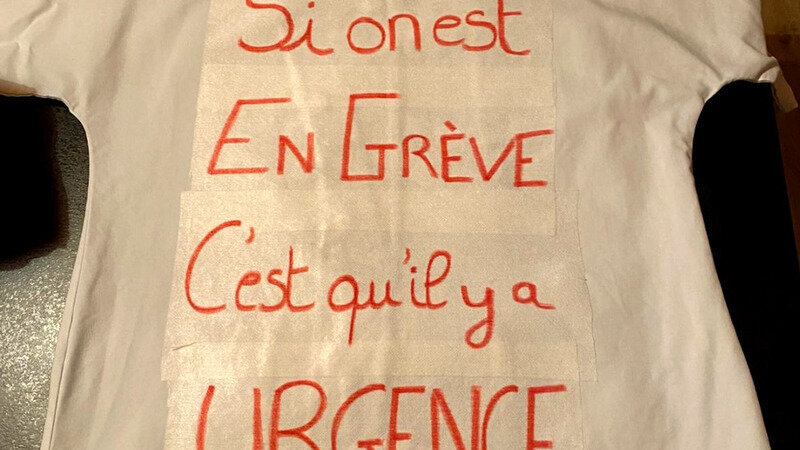 Si on est
EN GRÈVE
C'est qu'il y a
URGENCE